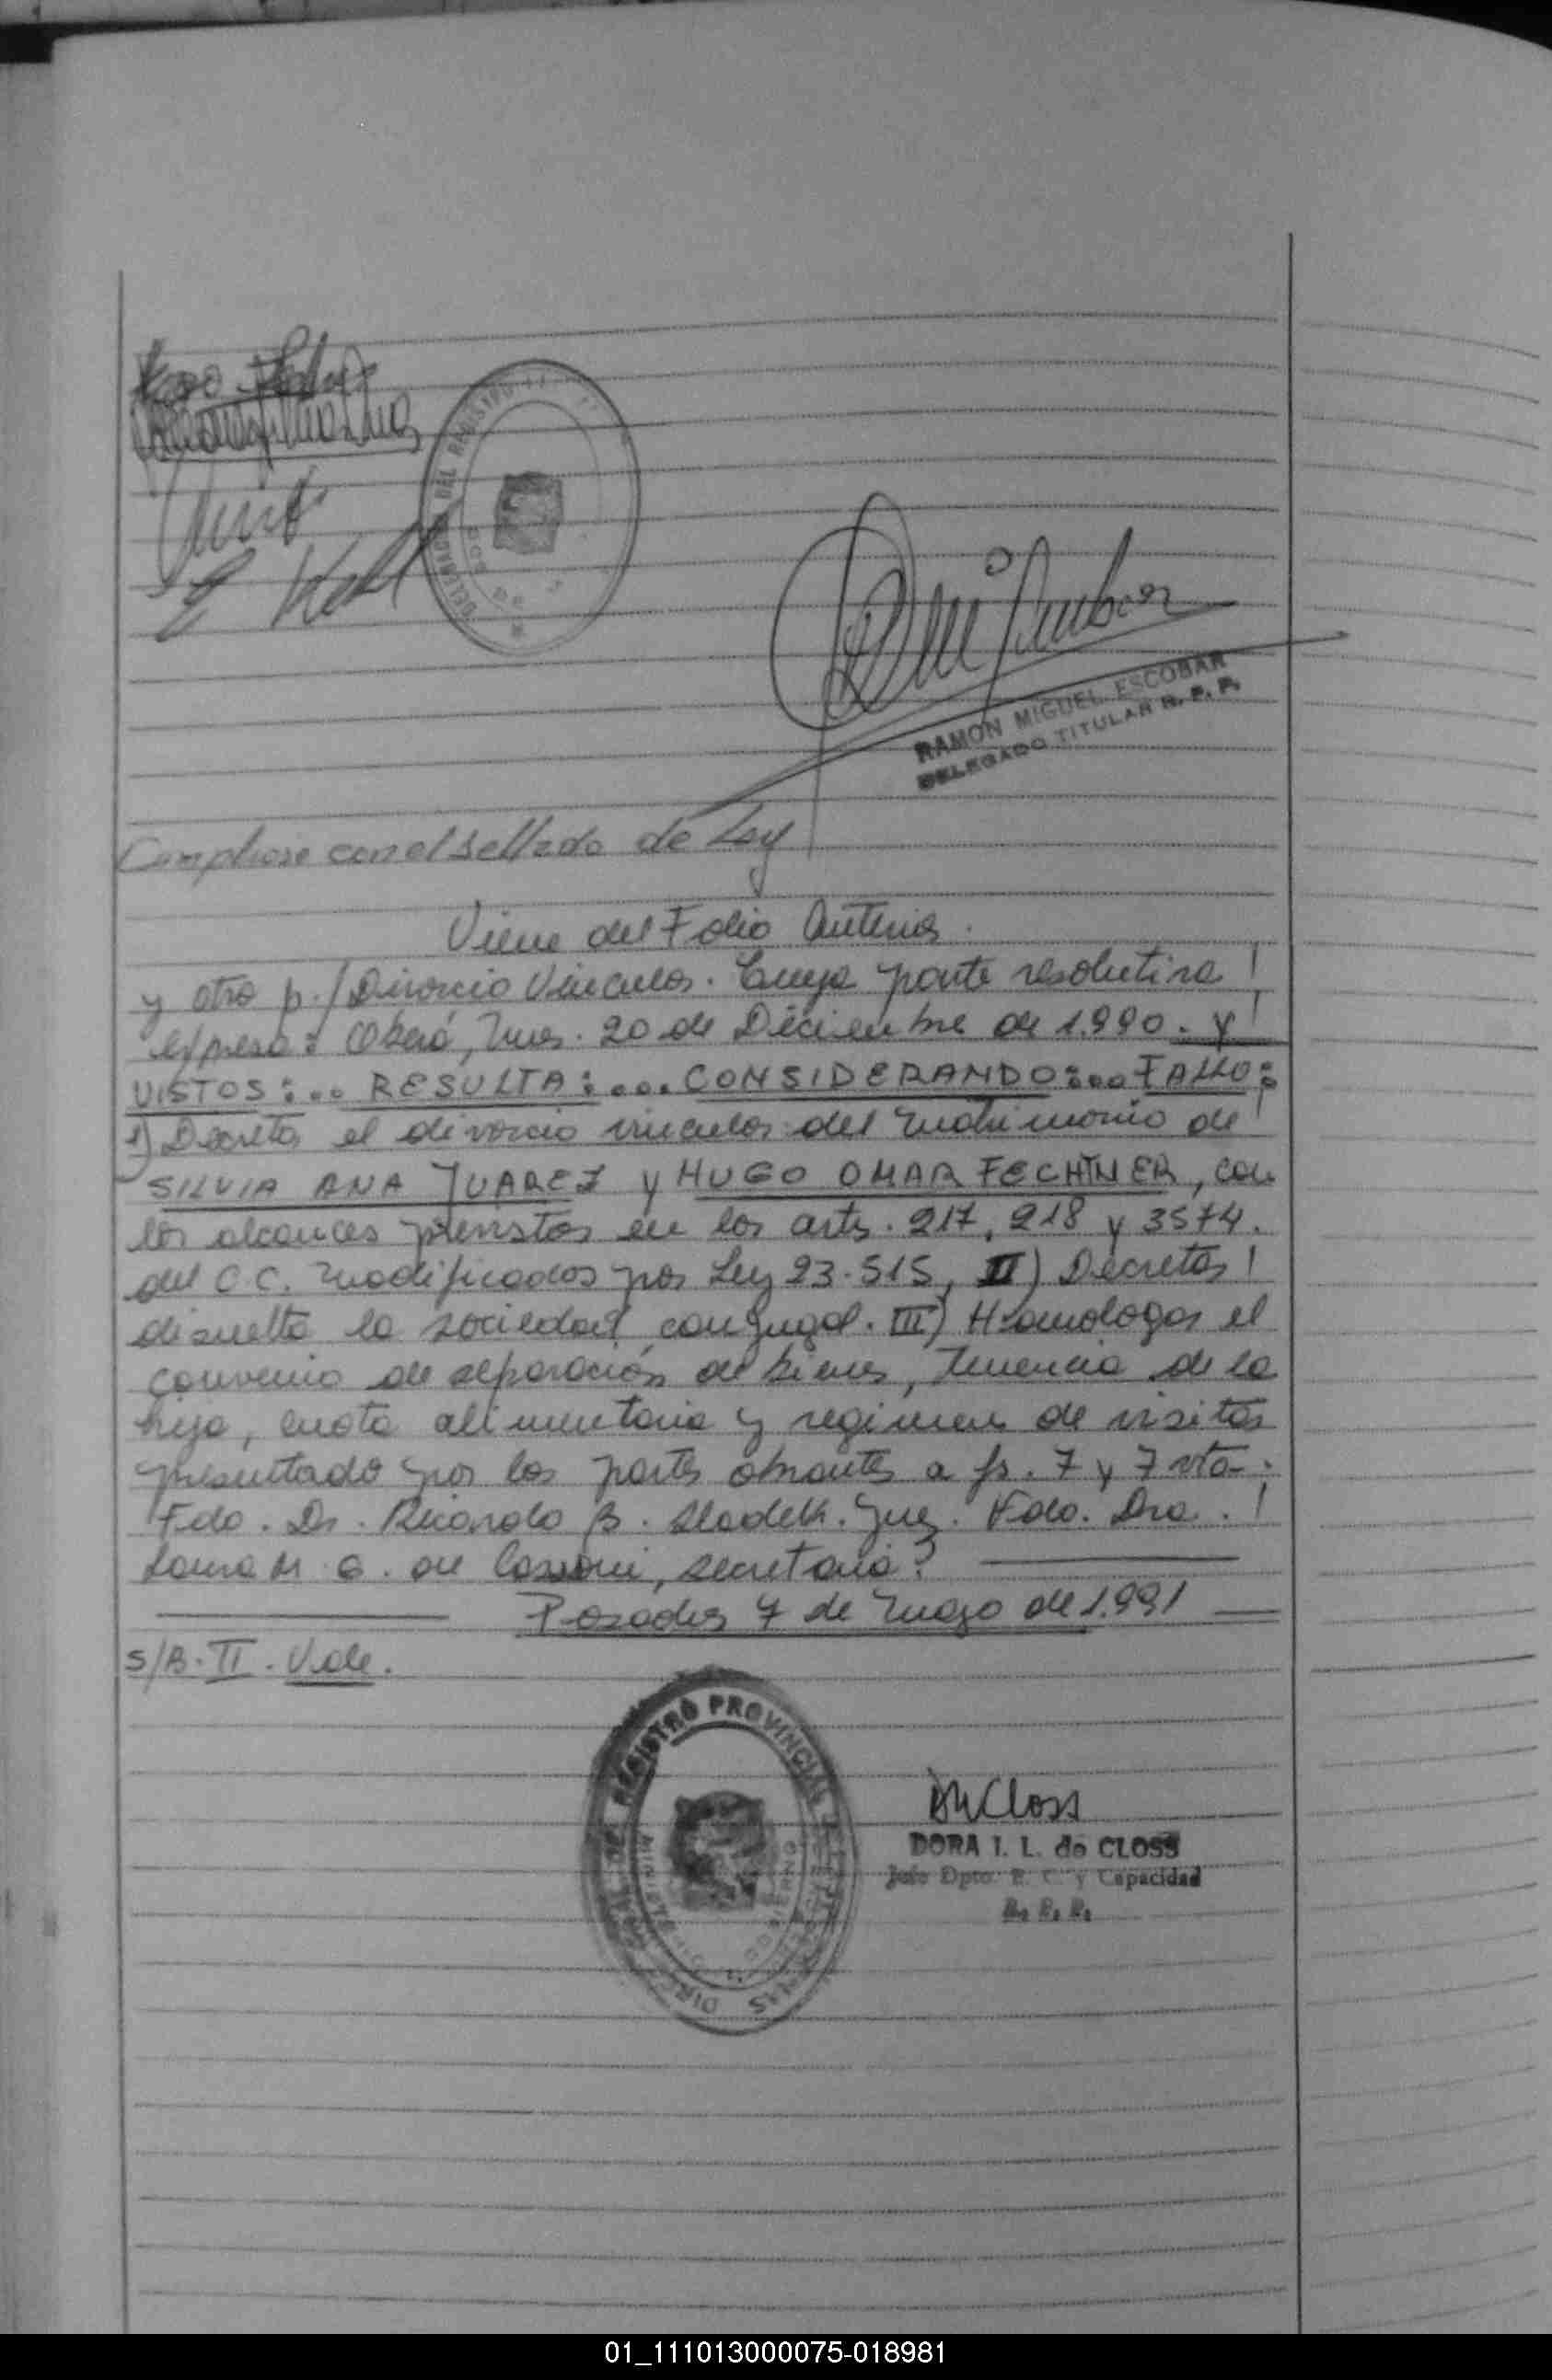 DELEGACION DEL REGISTRO
RAMON MIGUEL ESCOBAR
DELEGADO TITULAR R. P. P.
Cumpliose con el sellado de Ley
Viene del Folio Anterior.
y otro p./Divorcio Vincular. Cuya parte resolutiva
expresa: Oberá, Mnes. 20 de Diciembre de 1.990. Y
VISTOS:... RESULTA:.... CONSIDERANDO:... FALLO:
1) Decretar el divorcio vincular del matrimonio de
SILVIA ANA JUAREZ y HUGO OMAR FECHTNER, con
los alcances previstos en los arts. 217, 218 y 3574.
del C.C. modificados por Ley 23.515, II) Decretar
disuelta la sociedad conyugal. III) Homologar el
convenio de separación de bienes, tenencia de la
hija, cuota alimentaria y regimen de visitas
presentado por las partes obrantes a fs. 7 y 7 vta.
Fdo. Dr. Ricardo B. Juez. Fdo. Dra.
Laura M. G. de secretaria
Posadas 7 de Mayo de 1.991
S/B. II. Vale.
REGISTRO PROVINCIAL DE LAS PERSONAS
MINISTERIO GOBIERNO
DORA I. L. de CLOSS
Jefe Dpto. E. C. y Capacidad
R. P. P.
01_111013000075-018981